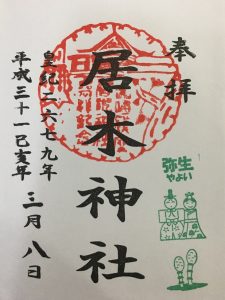 奉拝
居木神社
皇紀二六七九年
平成三十一己亥年
三月八日
弥生
やよい